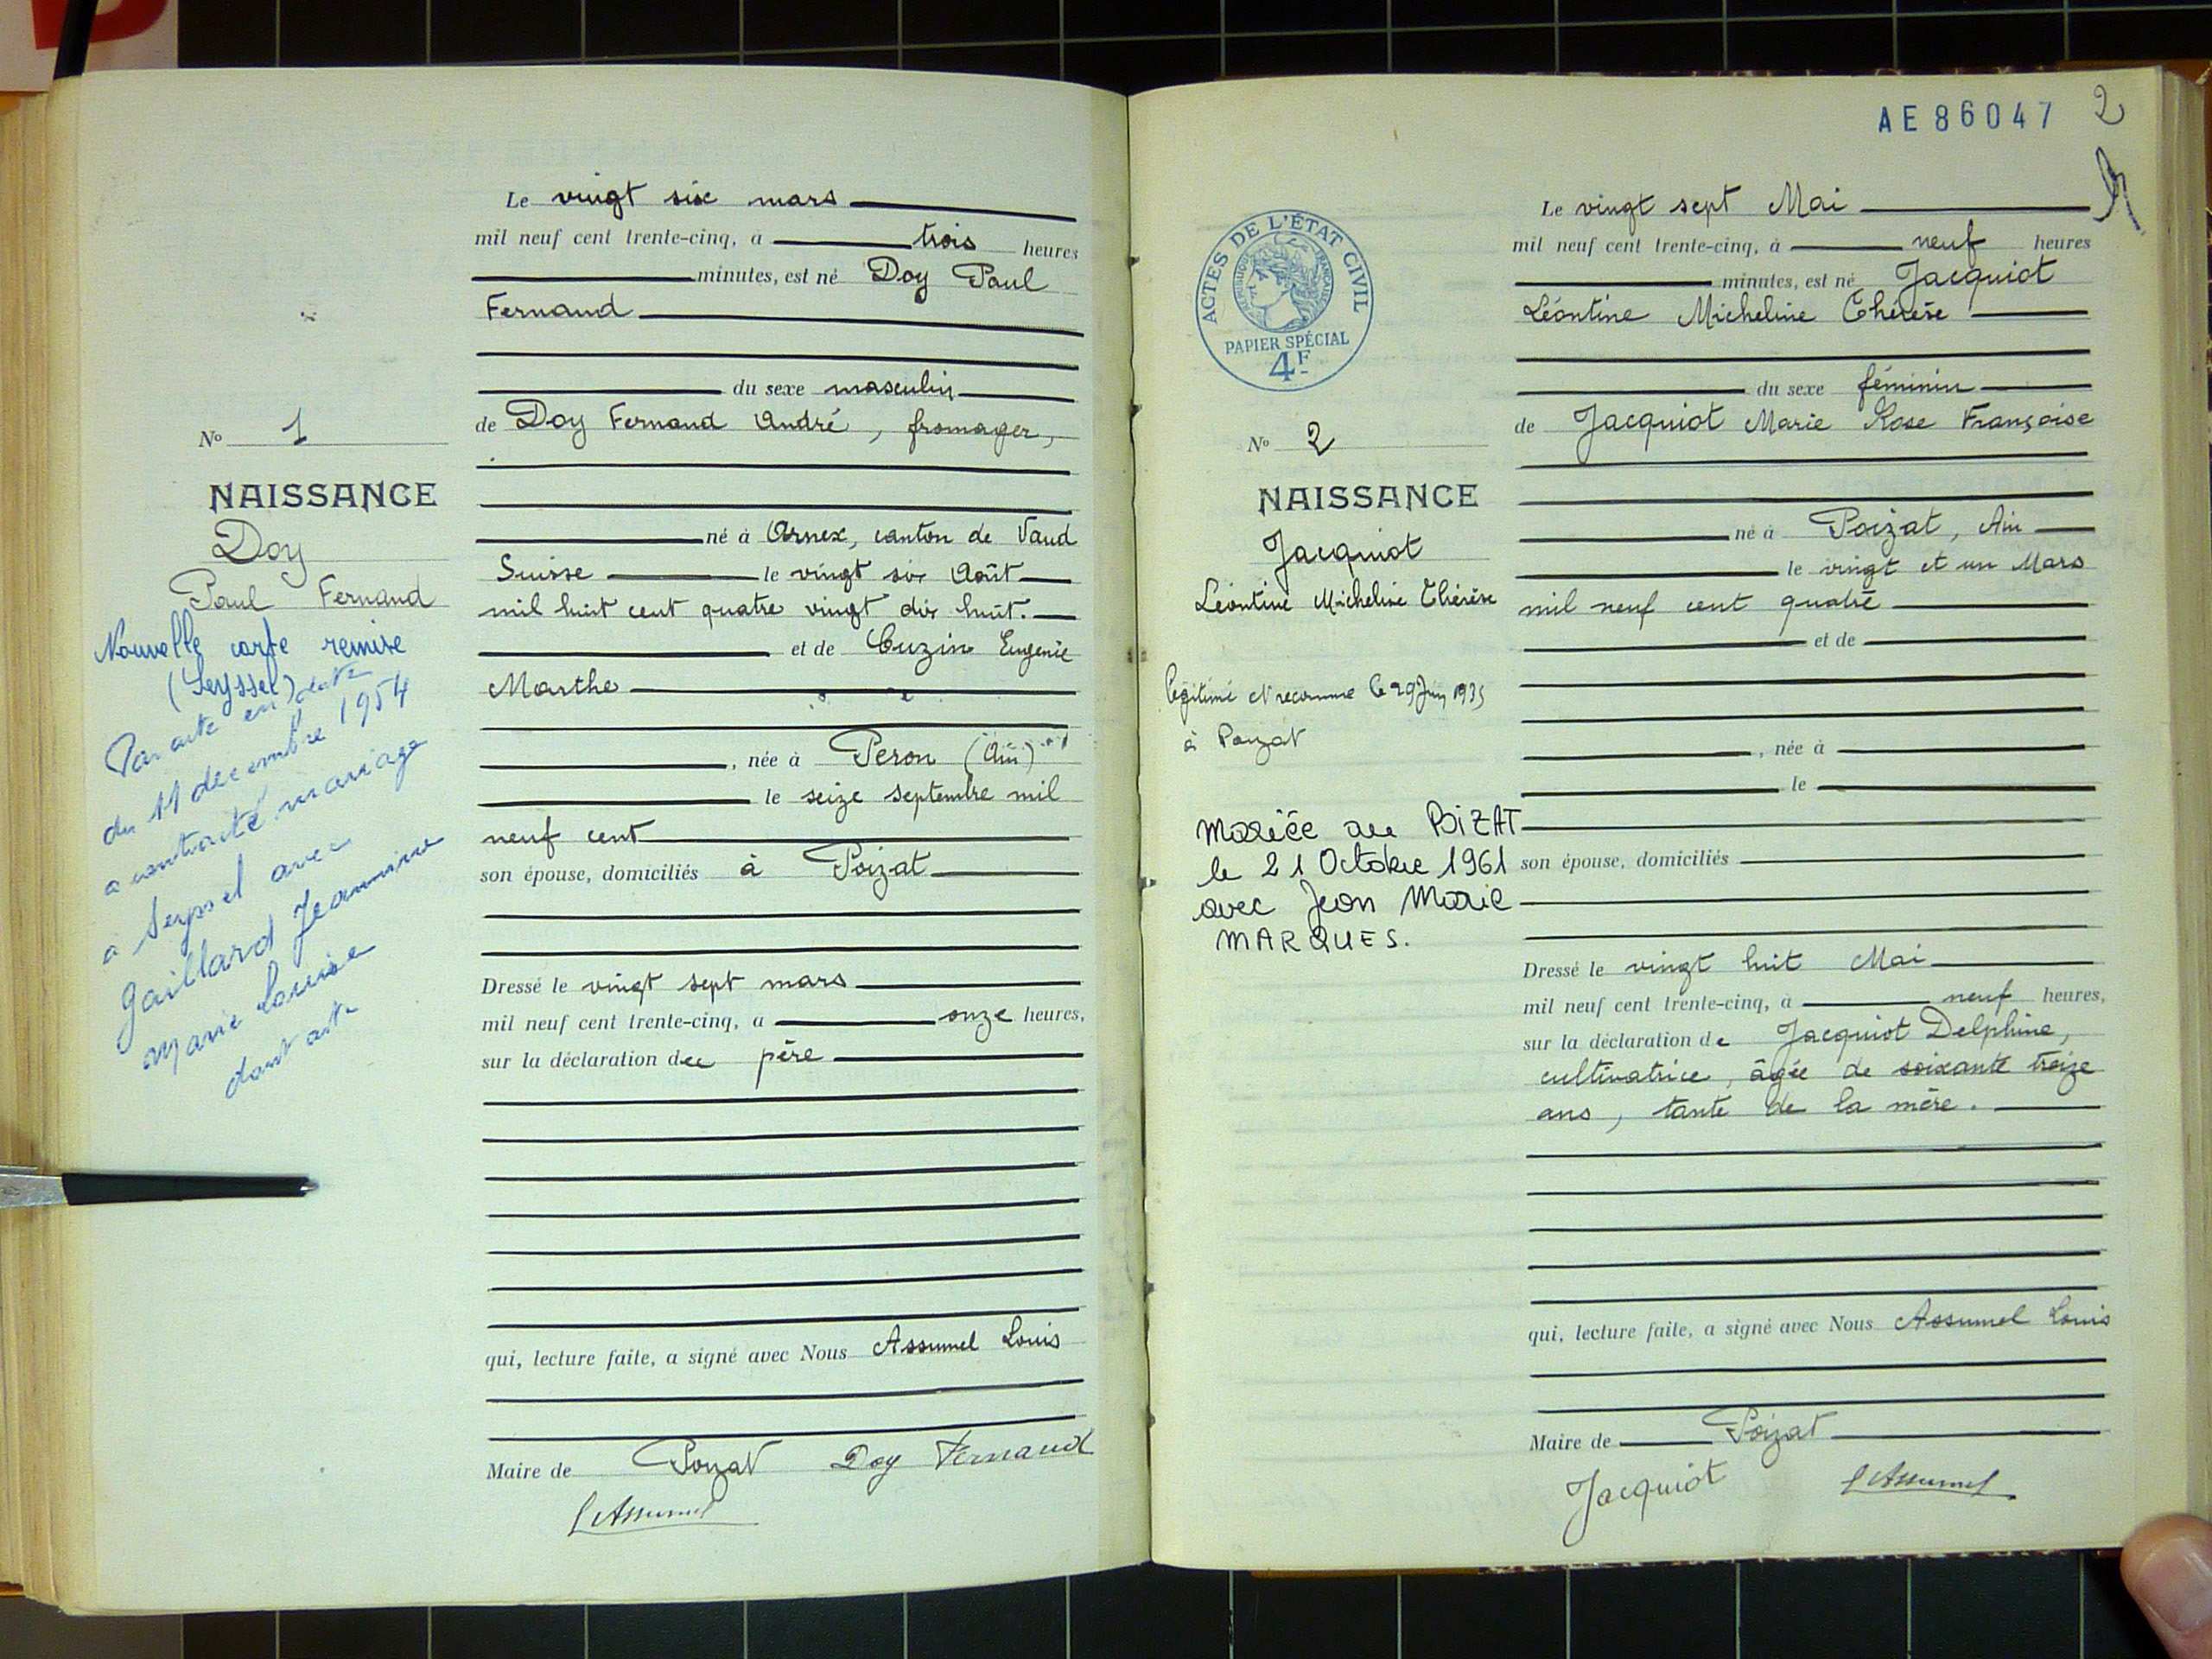 Le vingt six mars
mil neuf cent trente-cinq, à trois heures
minutes, est né Doy Paul
Fernand
du sexe masculin
de Doy Fernand André, fromager,
né à Arnex, canton de Vaud
Suisse le vingt six Août
mil huit cent quatre vingt dix huit.
et de Cuzin Eugenie
Marthe
, née à Peron (Ain)
le seize septembre mil
neuf cent
son épouse, domiciliés à Poizat
Dressé le vingt sept mars
mil neuf cent trente-cinq, à onze heures,
sur la déclaration du père
qui, lecture faite, a signé avec Nous Assumel Louis
Maire de Poizat Doy Fernand
L Assumel
No 1
NAISSANCE
Doy
Paul Fernand
Nouvelle carte remise
(Seyssel)
Par acte en date
du 11 decembre 1954
a contracté mariage
a Seyssel avec
Gaillard Jeannine
Marie Louise
dont acte
AE 86047 2
ACTES DE L'ÉTAT CIVIL
RÉPUBLIQUE FRANÇAISE
PAPIER SPÉCIAL
4F
No 2
NAISSANCE
Jacquiot
Léontine Micheline Thérèse
légitimé et reconnue le 29 Juin 1935
à Poizat
Mariée au POIZAT
le 21 Octobre 1961
avec Jean Marie
MARQUES.
Le vingt sept Mai
mil neuf cent trente-cinq, à neuf heures
minutes, est né Jacquiot
Léontine Micheline Thérèse
du sexe féminin
de Jacquiot Marie Rose Françoise
né à Poizat, Ain
le vingt et un Mars
mil neuf cent quatre
et de
, née à
le
son épouse, domiciliés
Dressé le vingt huit Mai
mil neuf cent trente-cinq, à neuf heures,
sur la déclaration de Jacquiot Delphine,
cultivatrice, âgée de soixante treize
ans, tante de la mère.
qui, lecture faite, a signé avec Nous Assumel Louis
Maire de Poizat
Jacquiot L Assumel